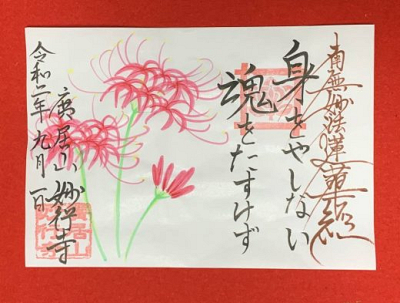 南無妙法蓮華経
身をやしない
魂をたすけず
廣居山 妙行寺
令和二年 九月一日